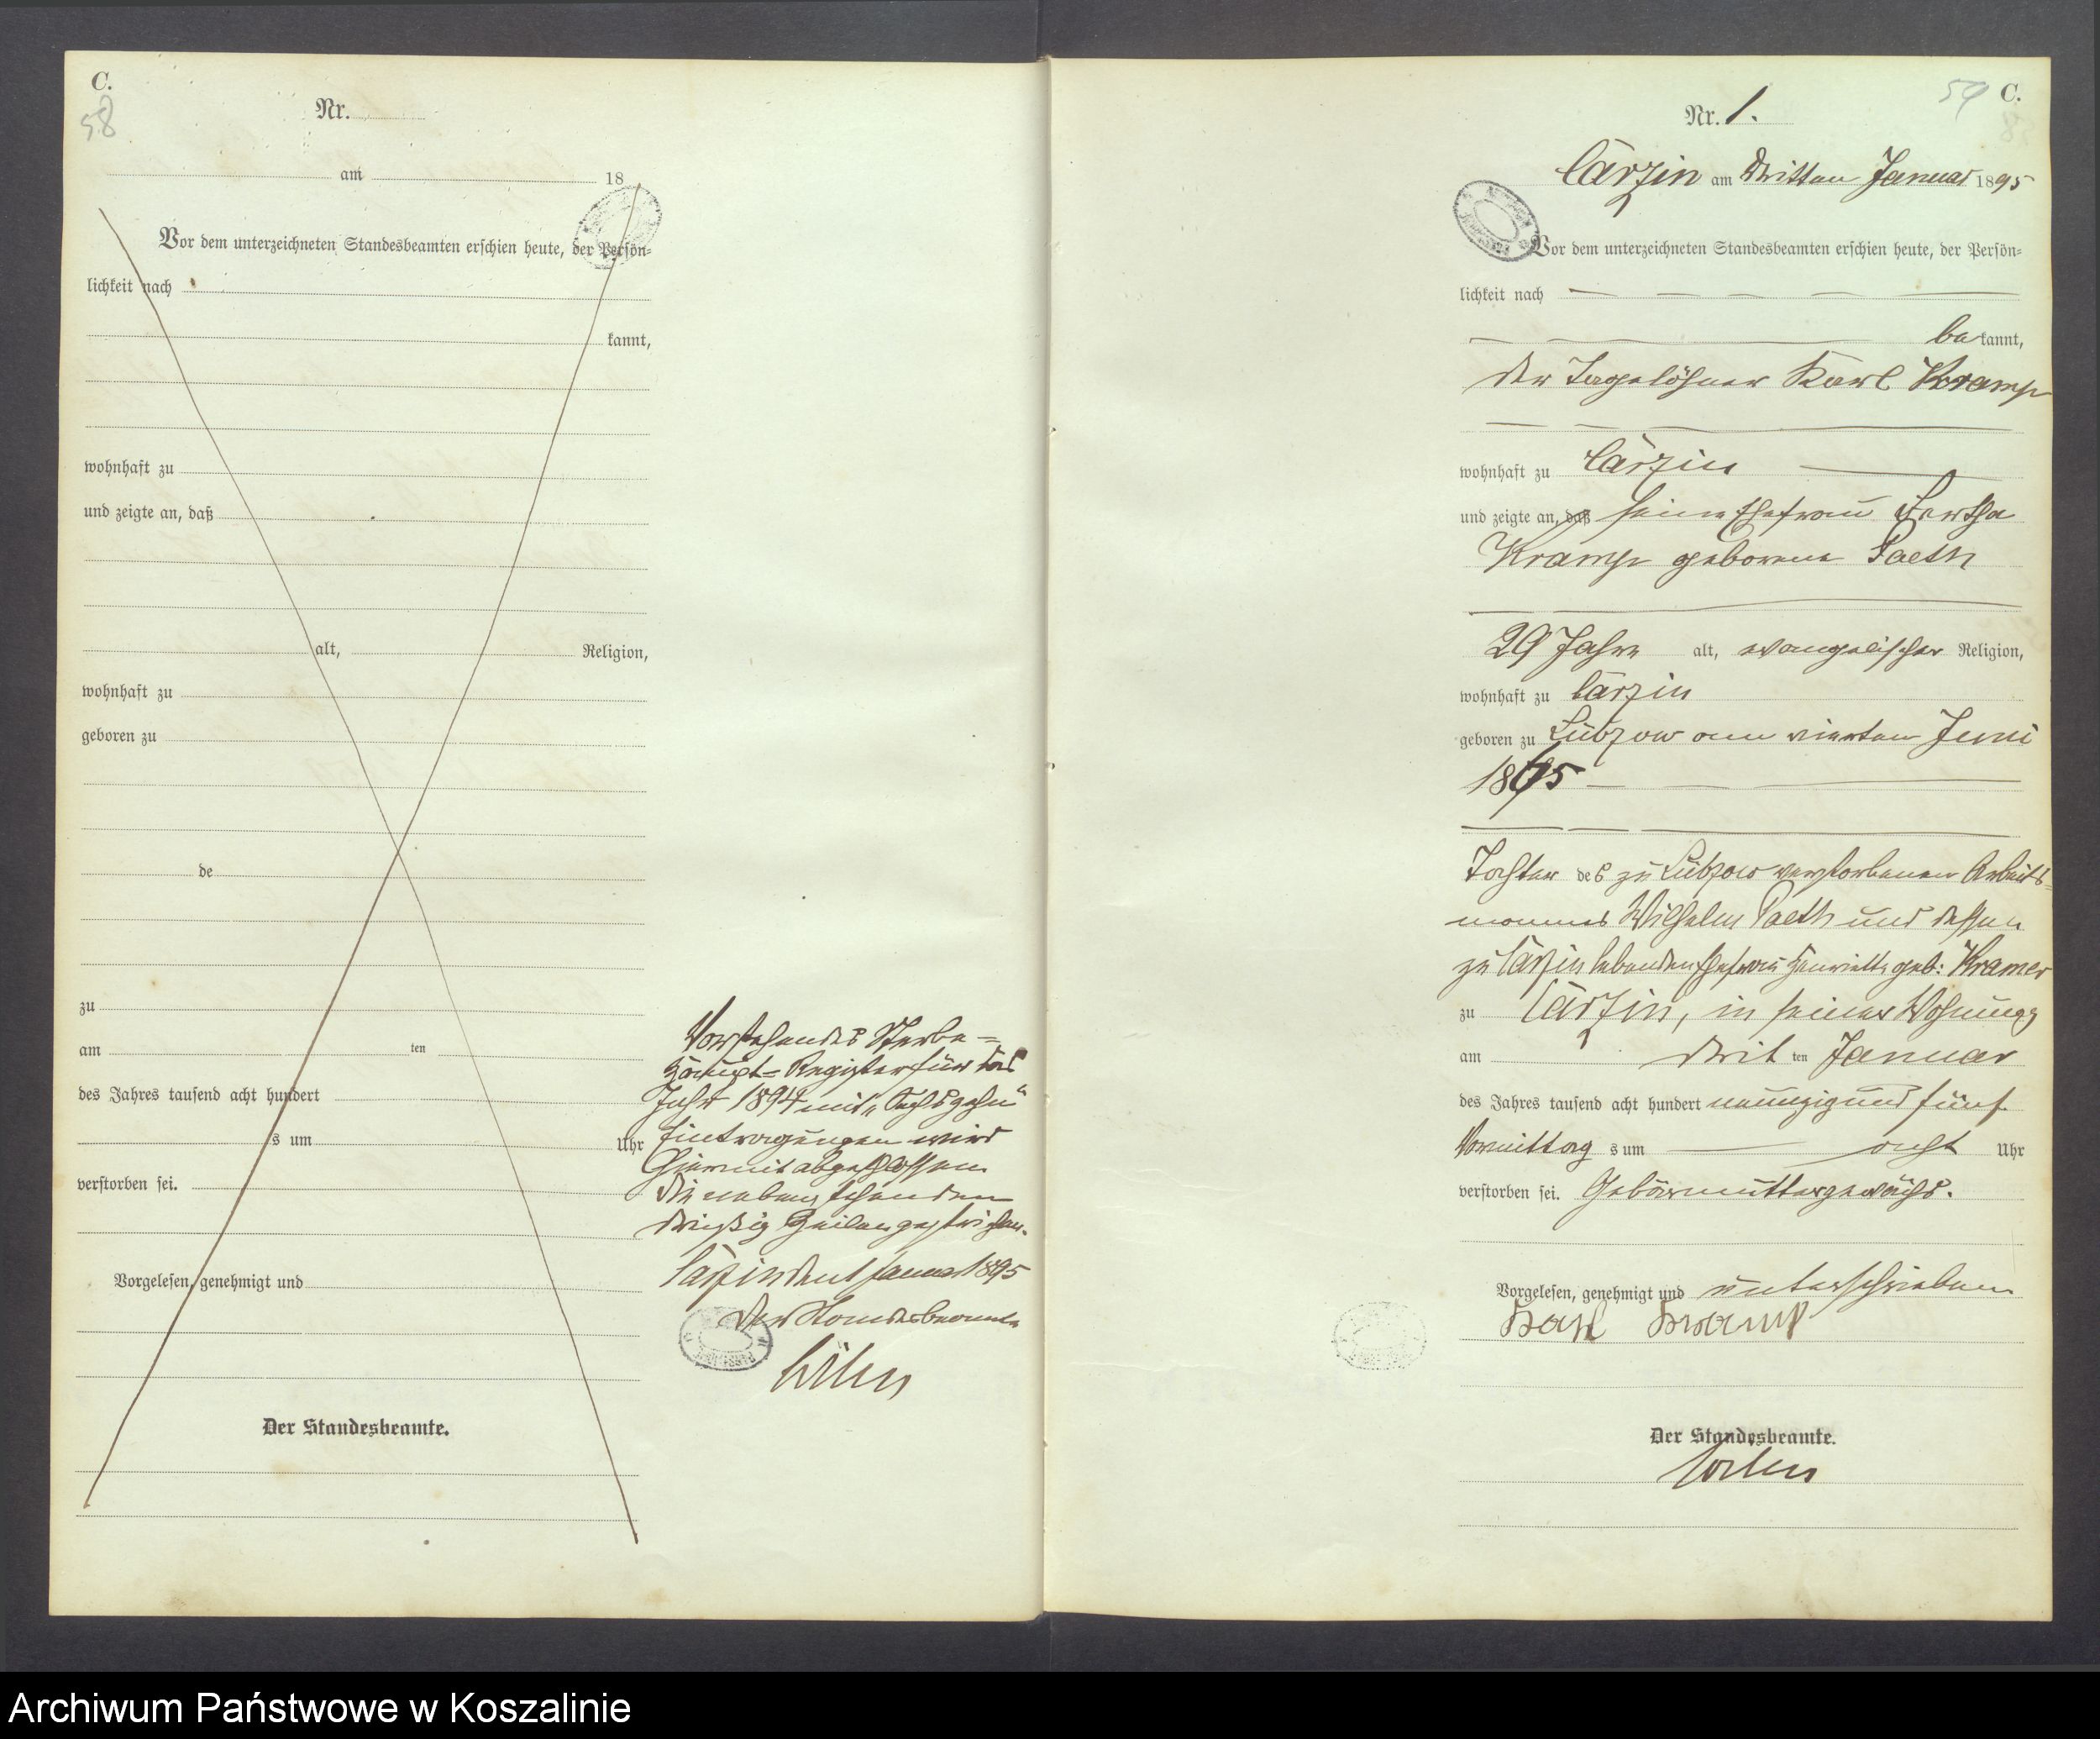 C.
58
Nr.
am 18
Vor dem unterzeichneten Standesbeamten erschien heute, der Persön-
lichkeit nach
kannt,
wohnhaft zu
und zeigte an, daß
alt, Religion,
wohnhaft zu
geboren zu
de
zu
am ten
des Jahres tausend acht hundert
s um Uhr
verstorben sei.
Vorgelesen, genehmigt und
Der Standesbeamte.
Vorstehendes Sterbe-
Haupt-Register für das
Jahr 1894 mit „Sechszehn“
Eintragungen wird
hiermit abgeschlossen
Die nebenstehenden
dreißig Zeilen gestrichen.
Carzin den 1 Januar 1895
Der Standesbeamte
59 C.
Nr. 1.
Carzin am dritten Januar 1895
Vor dem unterzeichneten Standesbeamten erschien heute, der Persön-
lichkeit nach
bekannt,
der Tagelöhner Karl Kramp
wohnhaft zu Carzin
und zeigte an, daß seine Ehefrau Bertha
Kramp geborene Paeth
29 Jahre alt, evangelischer Religion,
wohnhaft zu Carzin
geboren zu Lübzow am vierten Juni
1865
Tochter des zu Lübzow verstorbenen Arbeits-
mannes Wilhelm Paeth und dessen
zu Carzin lebenden Ehefrau Henriette geb: Kramer
zu Carzin, in seiner Wohnung
am dritten Januar
des Jahres tausend acht hundert neunzig und fünf
Vormittags um acht Uhr
verstorben sei. Gebärmuttergewächs.
Vorgelesen, genehmigt und unterschrieben
Karl Kramp
Der Standesbeamte.
Archiwum Państwowe w Koszalinie